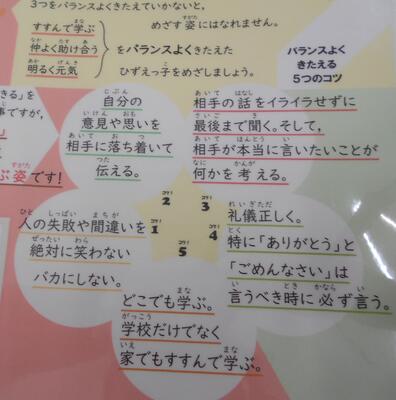 3つをバランスよくきたえていかないと、
めざす姿にはなれません。
すすんで学ぶ
仲よく助け合う
明るく元気
をバランスよくきたえた
ひずえっ子をめざしましょう。
バランスよく
きたえる
5つのコツ
きる」を
事ですが、
ぶ姿です!
人の失敗や間違いを
絶対に笑わない
バカにしない。
コツ!
1
自分の
意見や思いを
相手に落ち着いて
伝える。
コツ!
2
相手の話をイライラせずに
最後まで聞く。そして、
相手が本当に言いたいことが
何かを考える。
コツ!
3
礼儀正しく。
特に「ありがとう」と
「ごめんなさい」は
言うべき時に必ず言う。
コツ!
4
どこでも学ぶ。
学校だけでなく
家でもすすんで学ぶ。
コツ!
5